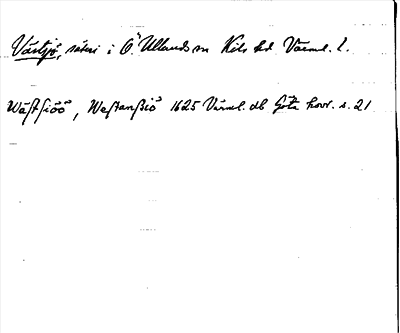 Västjö, säteri i Ö. Ullerud sn Kils hd Värml. l.
Wäſtſiöö, Weſtanſiö 1625 Värml. db Göta hovr. s. 21